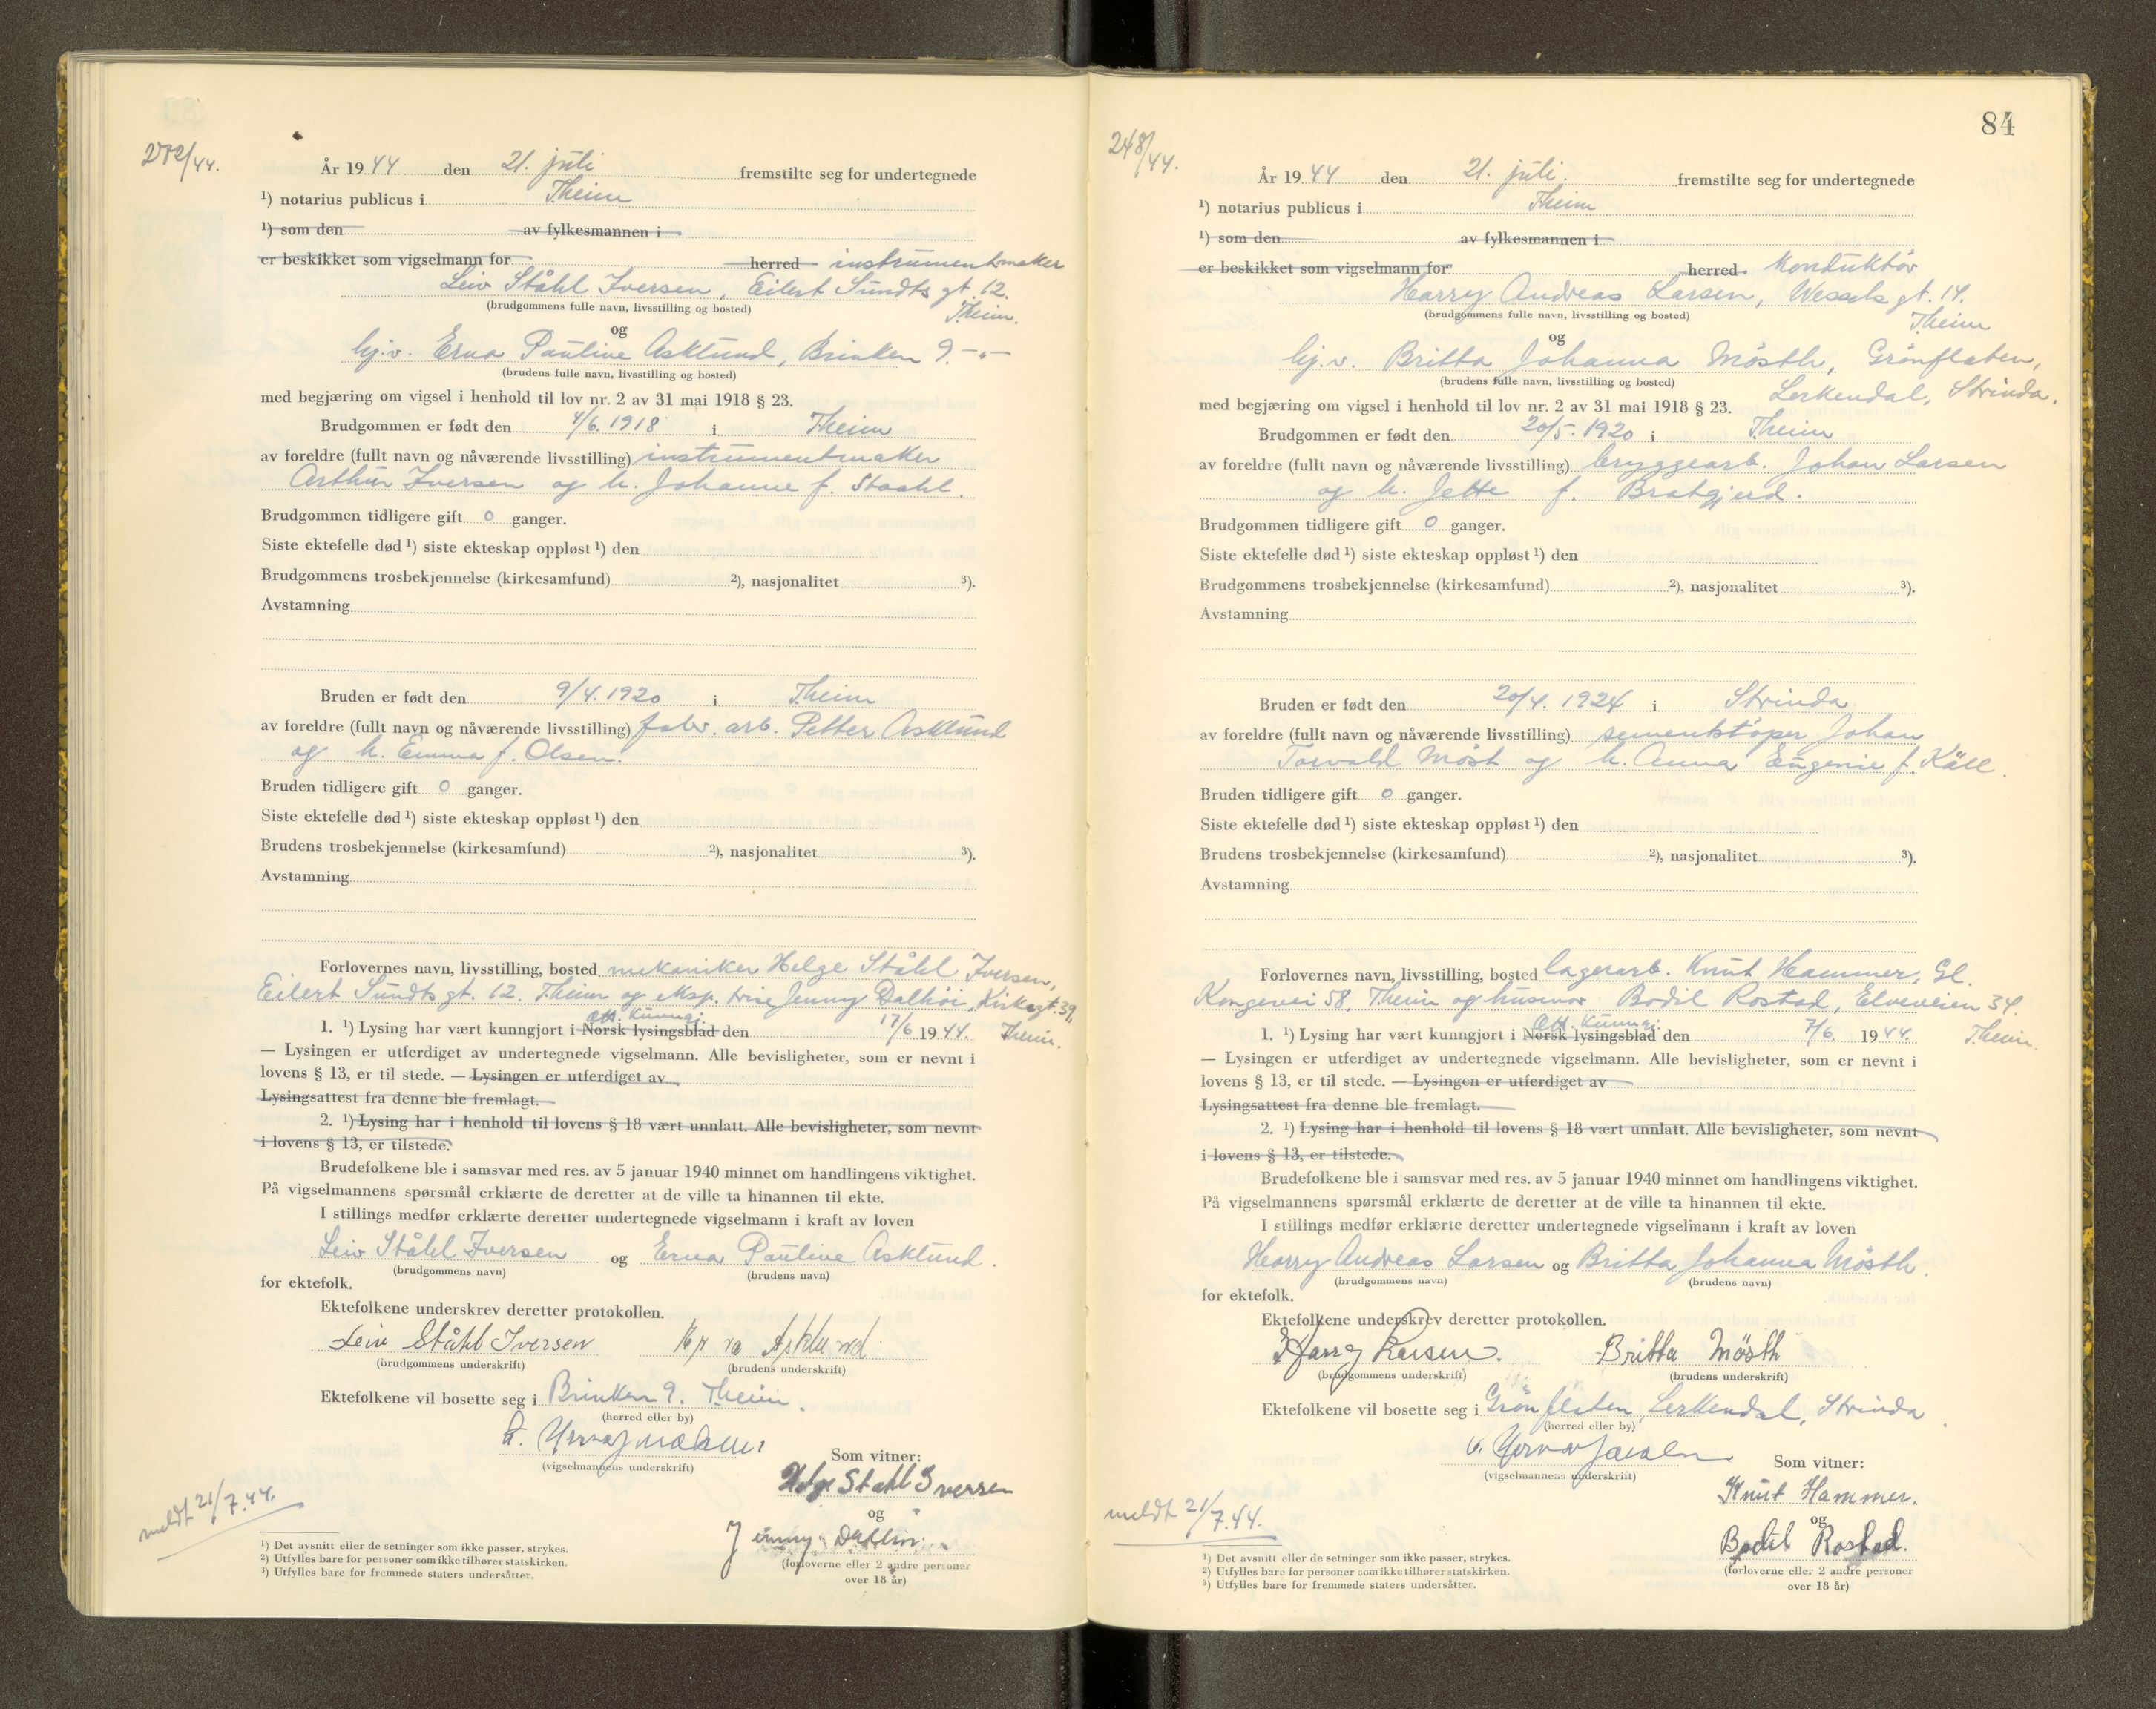 År 1944 den 21. juli fremstilte seg for undertegnede
¹) notarius publicus i Theim
¹) som den av fylkesmannen i
er beskikket som vigselmann for herred instrumentmaker
Leiv Ståhl Iversen, Eilert Sundts gt. 12.
(brudgommens fulle navn, livsstilling og bosted)
Theim.
og
hj.v. Erna Pauline Asklund, Brinken 9. -"-
(brudens fulle navn, livsstilling og bosted)
med begjæring om vigsel i henhold til lov nr. 2 av 31 mai 1918 § 23.
Brudgommen er født den 4/6. 1918 i Theim
av foreldre (fullt navn og nåværende livsstilling) instrumentmaker
Arthur Iversen og h. Johanne f. Staahl.
Brudgommen tidligere gift 0 ganger.
Siste ektefelle død ¹) siste ekteskap oppløst ¹) den
Brudgommens trosbekjennelse (kirkesamfund) ²), nasjonalitet ³).
Avstamning
Bruden er født den 9/4. 1920 i Theim
av foreldre (fullt navn og nåværende livsstilling) fabr. arb. Petter Asklund
og h. Emma f. Olsen.
Bruden tidligere gift 0 ganger.
Siste ektefelle død ¹) siste ekteskap oppløst ¹) den
Brudens trosbekjennelse (kirkesamfund) ²), nasjonalitet ³).
Avstamning
Forlovernes navn, livsstilling, bosted mekaniker Helge Ståhl Iversen,
Eilert Sundts gt. 12. Theim og eksp. trise Jenny Dalhöi, Kirkegt. 39.
Off. Kunngj.
1. ¹) Lysing har vært kunngjort i Norsk lysingsblad den 17/6 1944. Theim.
— Lysingen er utferdiget av undertegnede vigselmann. Alle bevisligheter, som er nevnt i
lovens § 13, er til stede. — Lysingen er utferdiget av
Lysingsattest fra denne ble fremlagt.
2. ¹) Lysing har i henhold til lovens § 18 vært unnlatt. Alle bevisligheter, som nevnt
i lovens § 13, er tilstede.
Brudefolkene ble i samsvar med res. av 5 januar 1940 minnet om handlingens viktighet.
På vigselmannens spørsmål erklærte de deretter at de ville ta hinannen til ekte.
I stillings medfør erklærte deretter undertegnede vigselmann i kraft av loven
Leiv Ståhl Iversen og Erna Pauline Asklund.
(brudgommens navn) (brudens navn)
for ektefolk.
Ektefolkene underskrev deretter protokollen.
Leiv Ståhl Iversen Erna Asklund
(brudgommens underskrift) (brudens underskrift)
Ektefolkene vil bosette seg i Brinken 9. Theim.
(herred eller by)
(vigselmannens underskrift)
Som vitner:
Helge Ståhl Iversen
og
Jenny Dalhöi
(forloverne eller 2 andre personer
over 18 år)
meldt 21/7.44.
¹) Det avsnitt eller de setninger som ikke passer, strykes.
²) Utfylles bare for personer som ikke tilhører statskirken.
³) Utfylles bare for fremmede staters undersåtter.
84
248/44.
År 1944 den 21. juli. fremstilte seg for undertegnede
¹) notarius publicus i Theim
¹) som den av fylkesmannen i
er beskikket som vigselmann for herred konduktör
Harry Andreas Larsen, Wessels gt. 14.
(brudgommens fulle navn, livsstilling og bosted)
Theim
og
hj.v. Britta Johanna Mösth, Grönflaten,
(brudens fulle navn, livsstilling og bosted)
Lerkendal, Strinda.
med begjæring om vigsel i henhold til lov nr. 2 av 31 mai 1918 § 23.
Brudgommen er født den 20/5. 1920 i Theim
av foreldre (fullt navn og nåværende livsstilling) bryggearb. Johan Larsen
og h. Jette f. Bratgjerd.
Brudgommen tidligere gift 0 ganger.
Siste ektefelle død ¹) siste ekteskap oppløst ¹) den
Brudgommens trosbekjennelse (kirkesamfund) ²), nasjonalitet ³).
Avstamning
Bruden er født den 20/4. 1924 i Strinda
av foreldre (fullt navn og nåværende livsstilling) sementstöper Johan
Torvald Möst og h. Anna Eugenie f. Käll.
Bruden tidligere gift 0 ganger.
Siste ektefelle død ¹) siste ekteskap oppløst ¹) den
Brudens trosbekjennelse (kirkesamfund) ²), nasjonalitet ³).
Avstamning
Forlovernes navn, livsstilling, bosted lagerarb. Knut Hammer, Gl.
Kongevei 58, Theim og husmor Bodil Rostad, Elveveien 34.
Off. Kunngj.
1. ¹) Lysing har vært kunngjort i Norsk lysingsblad den 7/6. 1944. Theim.
— Lysingen er utferdiget av undertegnede vigselmann. Alle bevisligheter, som er nevnt i
lovens § 13, er til stede. — Lysingen er utferdiget av
Lysingsattest fra denne ble fremlagt.
2. ¹) Lysing har i henhold til lovens § 18 vært unnlatt. Alle bevisligheter, som nevnt
i lovens § 13, er tilstede.
Brudefolkene ble i samsvar med res. av 5 januar 1940 minnet om handlingens viktighet.
På vigselmannens spørsmål erklærte de deretter at de ville ta hinannen til ekte.
I stillings medfør erklærte deretter undertegnede vigselmann i kraft av loven
Harry Andreas Larsen og Britta Johanna Mösth.
(brudgommens navn) (brudens navn)
for ektefolk.
Ektefolkene underskrev deretter protokollen.
Harry Larsen. Britta Mösth
(brudgommens underskrift) (brudens underskrift)
Ektefolkene vil bosette seg i Grönflaten, Lerkendal, Strinda.
(herred eller by)
(vigselmannens underskrift)
Som vitner:
Knut Hammer.
og
Bodil Rostad.
(forloverne eller 2 andre personer
over 18 år)
meldt 21/7.44.
¹) Det avsnitt eller de setninger som ikke passer, strykes.
²) Utfylles bare for personer som ikke tilhører statskirken.
³) Utfylles bare for fremmede staters undersåtter.